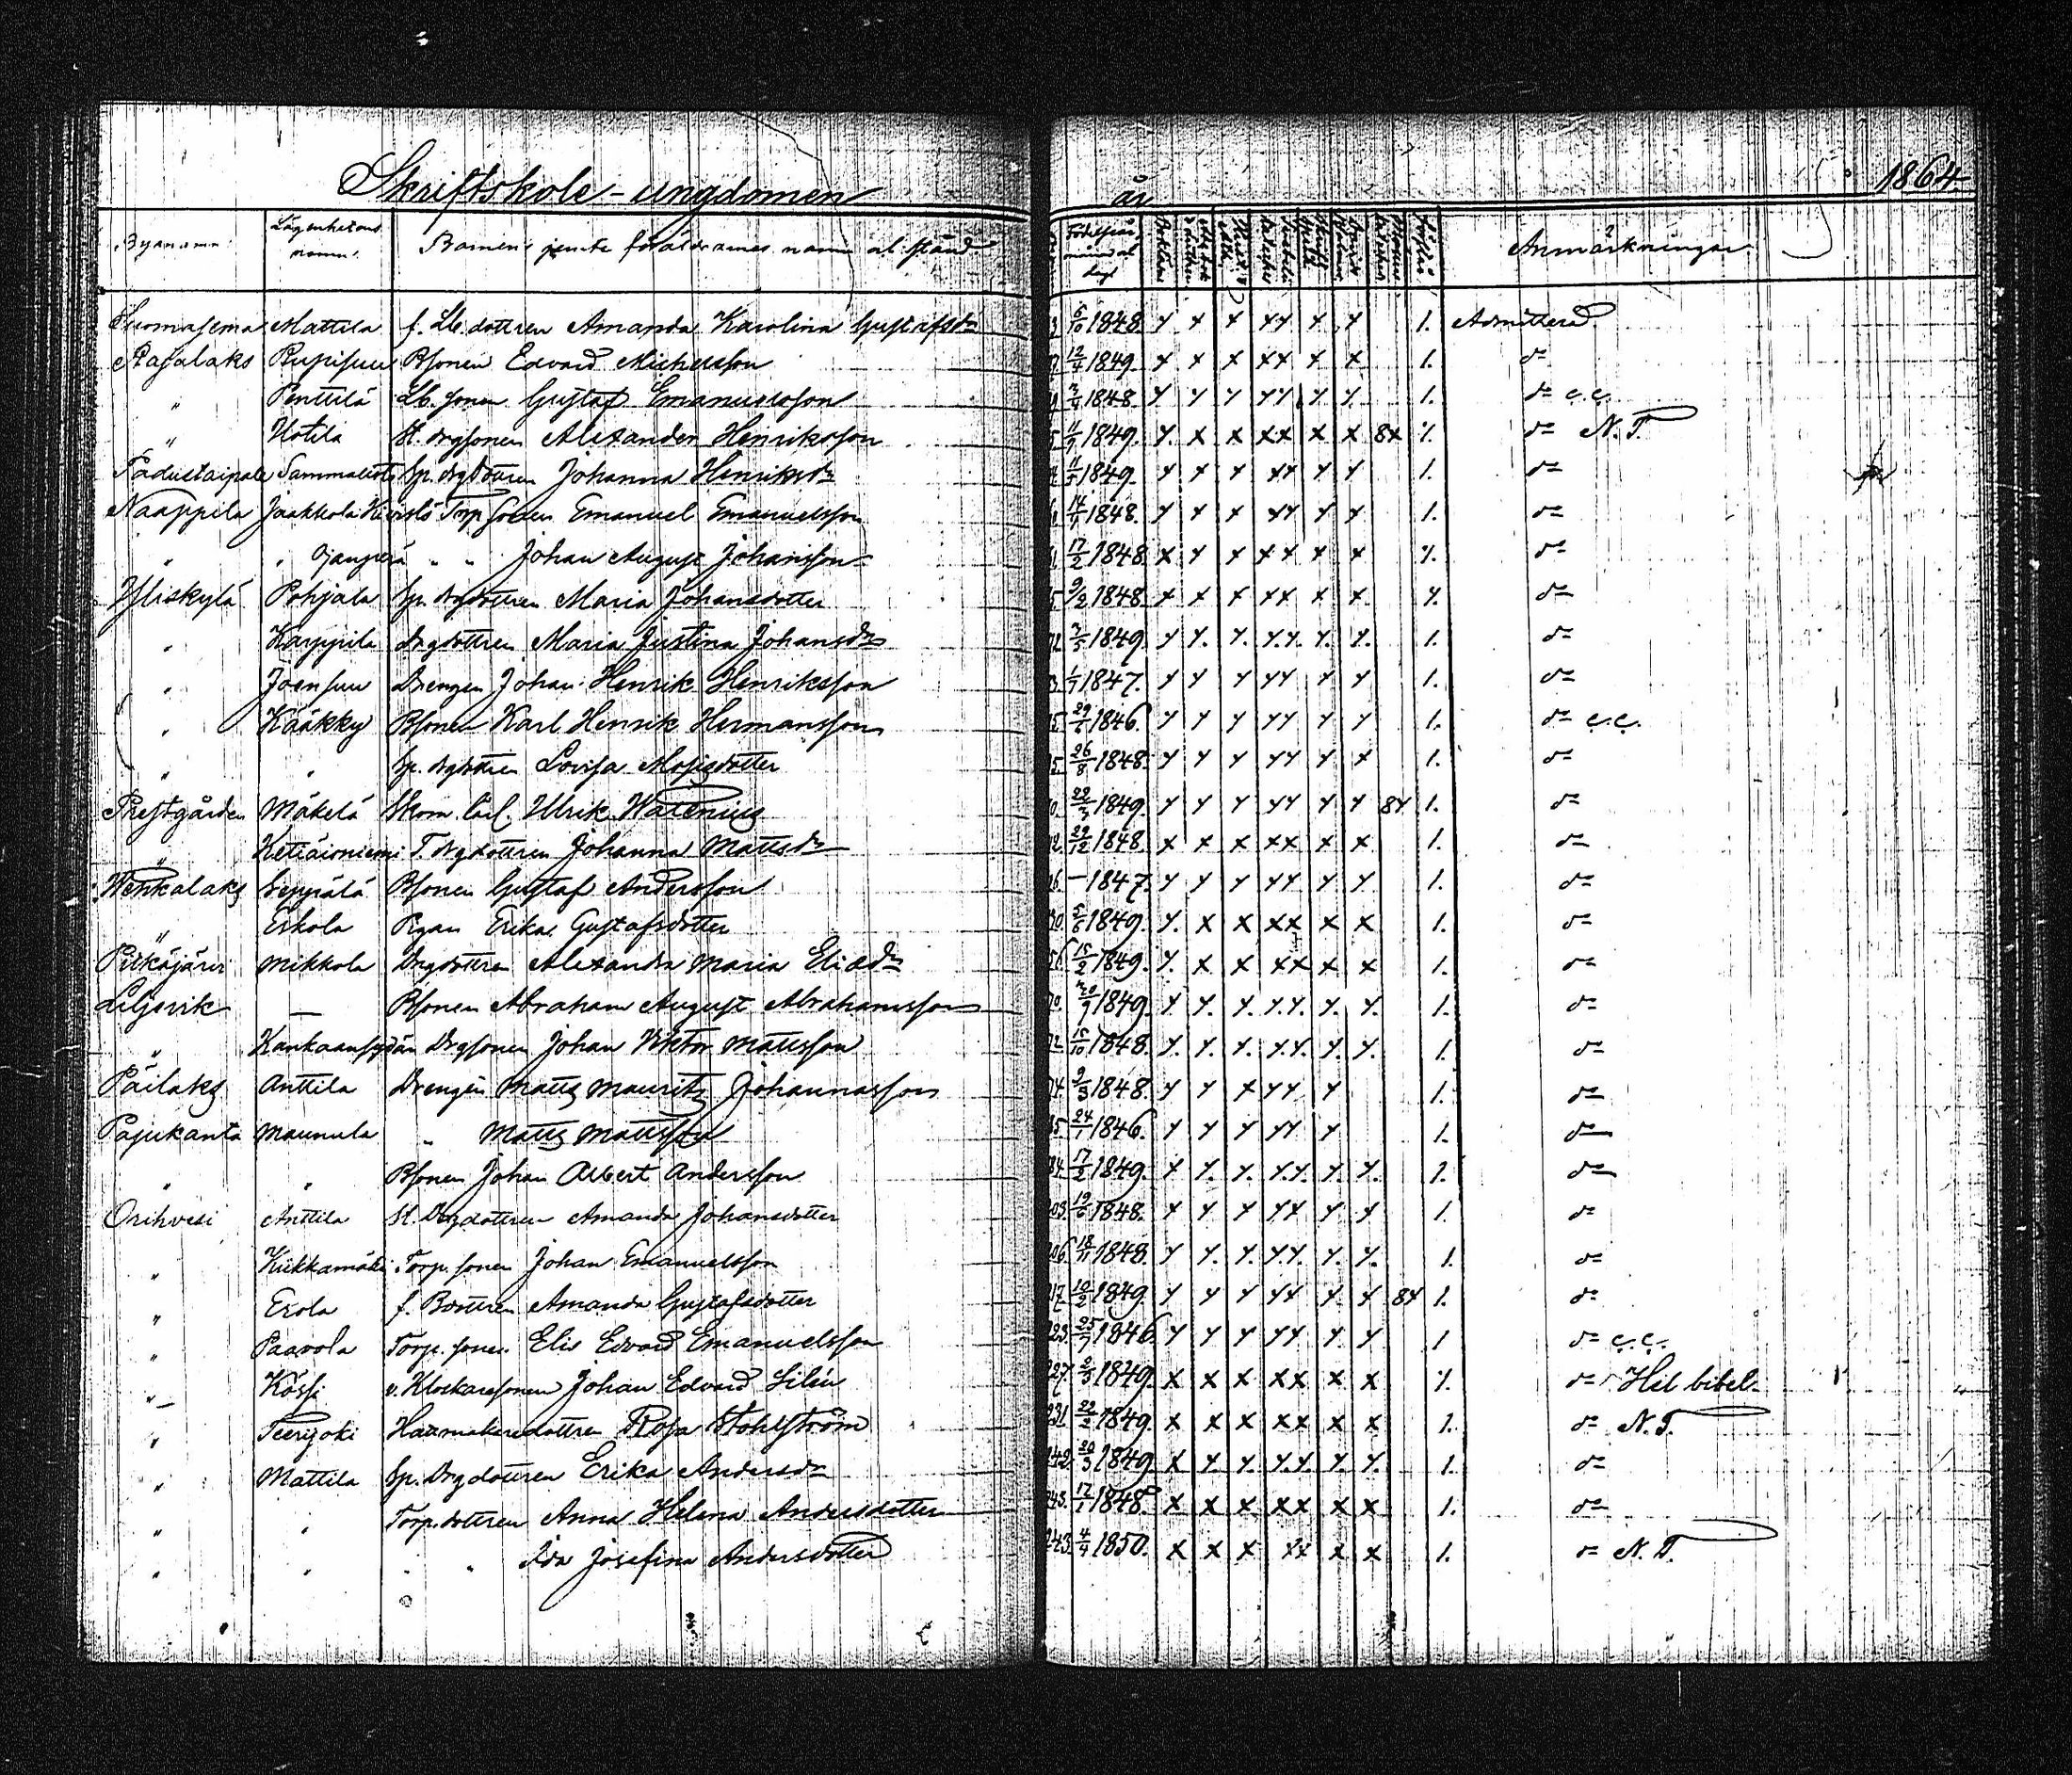 Skriftskole-ungdomen år 1864
Bynamn. Lägenhetens namn. Barnens jemte föräldrarnes namn och stånd. Födelseår, månad och dag Anmärkningar.
Mattila f. Lb. dottren Amanda Karolina Gustafsdr 6/10 1848. x x x xx x x 1. Admitterad
Rajalaks Rupisuu Bsonen Edvard Michelsson 12/4 1849. x x x xx x x 1. do
" Penttilä Lb. sonen Gustaf Emanuelsson 1848 x x x xx x x 1. do c.c.
" Hotila St. drgsonen Alexander Henriksson 1849. x x x xx x x 8x 1. do N.T.
Padustaipale Sp. drgdottren Johanna Henriksdr 1849 x x x xx x x 1. do
Naappila Jaakkola Torp. sonen Emanuel Emanuelsson 1848. x x x xx x x 1. do
" " Ojanperä " " Johan August Johansson 17/2 1848 x x x xx x x 1. do
Yliskylä Pohjala Sp. drgdottren Maria Johansdotter 9/2 1848 x x x xx x x 1. do
" Karppila Drgdottren Maria Justina Johansdr 1849. x x. x. x.x. x. x. 1. do
" Joensuu Drengen Johan Henrik Henriksson 1/7 1847. x x x xx x x 1. do
" Kääkky Bsonen Karl Henrik Hermansson 1846. x x x xx x x 1. do c.c.
" " Sp. drgdottren Lovisa Mojisdotter 26/8 1848. x x x xx x x 1. do
Prestgården Mäkelä Skom. lärl. Ulrik Watenius 22/3 1849. x x x xx x x 8x 1. do
" T. drgdottren Johanna Mattsdr 29/12 1848 x x x xx x x 1. do
Wenkalaks Seppälä Bsonen Gustaf Andersson – 1847. x x x xx x x 1. do
" Eskola Pigan Erika Gustafsdotter 5/6 1849. x. x x xx x x 1. do
Pitkäjärvi Mikkola Drgdottren Alexandra Maria Eliædr 15/2 1849. x. x x xx x x 1. do
Liljevik — Bsonen Abraham August Abrahamsson 1849. x x. x. x.x. x. x. 1. do
" Drgsonen Johan Viktor Mattsson 15/10 1848. x. x. x. x.x. x. x. 1. do
Päilaks Anttila Drengen Matts Mauritz Johannesson 9/3 1848. x x x xx x 1. do
Pajukanta Maunula " Matts Mattsson 24/1 1846. x x x xx x 1. do
" " Bsonen Johan Albert Andersson 17/2 1849. x x. x. x.x. x. x. 1. do
Orihvesi Anttila St. Drgdottren Amanda Johansdotter 19/6 1848. x x x xx x x 1. do
" Kiikkamäki Torp. sonen Johan Emanuelsson 18/11 1848. x x. x. x.x. x. x. 1. do
" Erola f. Bdottren Amanda Gustafsdotter 10/2 1849. x x x xx x x 8x 1. do
" Paavola Torp. sonen Elis Edvard Emanuelsson 25/7 1846. x x x xx x x 1 do c.c.
" Kössi v. Klockaresonen Johan Edvard Silén 1849. x x x xx x x 1. do Hel bibel.
" Teerijoki Hattmakaredottren Rosa Stohlström 22/2 1849. x x x xx x x 1. do N.T.
" Mattila Sp. Drgdottren Erika Andersdr 20/3 1849. x x. x. x.x. x. x. 1. do
" " Torp. dottren Anna Helena Andersdotter 12/1 1848. x x x xx x x 1. do
" " " " Ida Josefina Andersdotter 4/4 1850. x x x xx x x 1. do N.T.